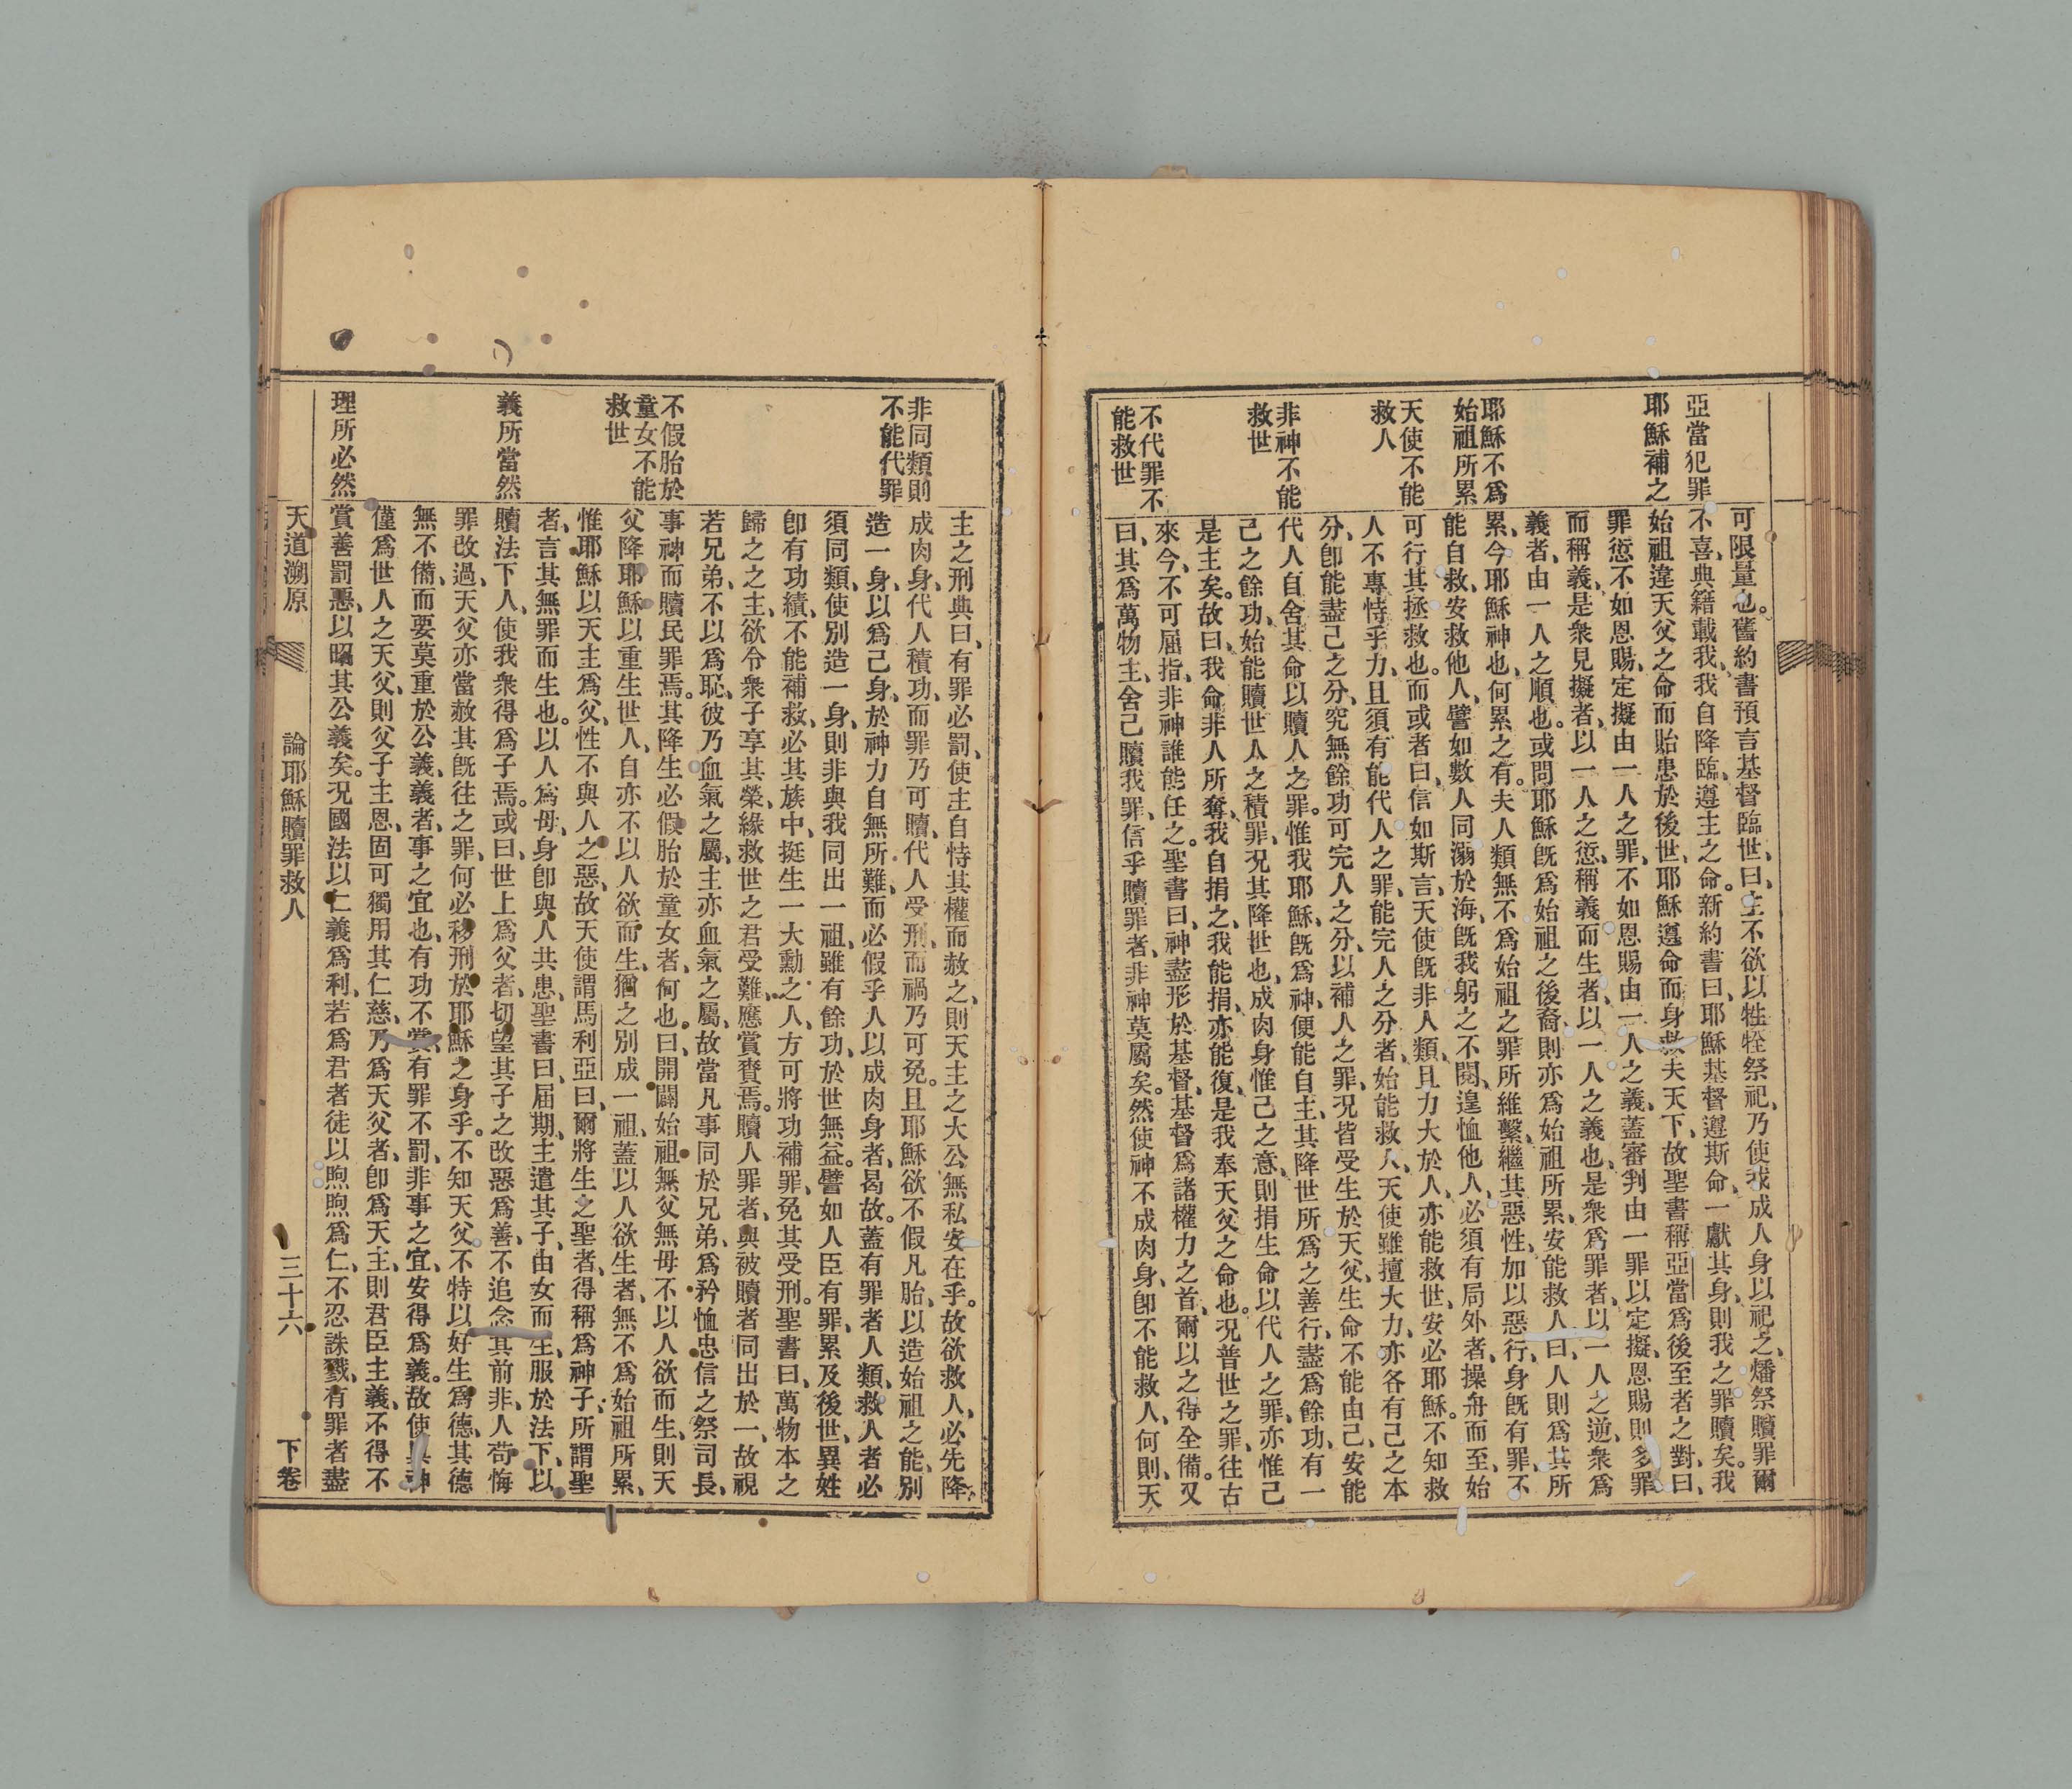 亞當犯罪
耶穌補之
耶穌不爲
始祖所累
天使不能
救人
非神不能
救世
不代罪不
能救世
可限量也。舊約書預言基督臨世、曰、主不欲以牲牷祭祀、乃使我成人身以祀之、燔祭贖罪爾
不喜、典籍載我、我自降臨、遵主之命。新約書曰、耶穌基督遵斯命、一獻其身、則我之罪贖矣。我
始祖違天父之命而貽患於後世、耶穌遵命而身救夫天下、故聖書稱亞當爲後至者之對、曰、
罪愆不如恩賜、定擬由一人之罪、不如恩賜由一人之義、蓋審判由一罪以定擬、恩賜則多罪
而稱義、是衆見擬者、以一人之愆、稱義而生者、以一人之義也、是衆爲罪者、以一人之逆、衆爲
義者、由一人之順也。或問耶穌旣爲始祖之後裔、則亦爲始祖所累、安能救人、曰、人則爲其所
累、今耶穌神也、何累之有。夫人類無不爲始祖之罪所維繫、繼其惡性、加以惡行、身旣有罪、不
能自救、安救他人、譬如數人同溺於海、旣我躬之不閱、遑恤他人、必須有局外者、操舟而至、始
可行其拯救也。而或者曰、信如斯言、天使旣非人類、且力大於人、亦能救世、安必耶穌。不知救
人不專恃乎力、且須有能代人之罪、能完人之分者、始能救人、天使雖擅大力、亦各有己之本
分、卽能盡己之分、究無餘功可完人之分、以補人之罪、況皆受生於天父、生命不能由己、安能
代人自舍其命以贖人之罪。惟我耶穌、旣爲神、便能自主、其降世所爲之善行、盡爲餘功、有一
己之餘功、始能贖世人之積罪、況其降世也、成肉身惟己之意、則捐生命以代人之罪、亦惟己
是主矣。故曰、我命非人所奪、我自捐之、我能捐、亦能復、是我奉天父之命也。況普世之罪、往古
來今、不可屈指、非神誰能任之。聖書曰、神盡形於基督、基督爲諸權力之首、爾以之得全備。又
曰、其爲萬物主、舍己贖我罪、信乎贖罪者、非神莫屬矣。然使神不成肉身、卽不能救人、何則、天
非同類則
不能代罪
不假胎於
童女不能
救世
義所當然
理所必然
主之刑典曰、有罪必罰、使主自恃其權而赦之、則天主之大公無私安在乎。故欲救人、必先降
成肉身、代人積功、而罪乃可贖、代人受刑、而禍乃可免。且耶穌欲不假凡胎、以造始祖之能、別
造一身、以爲己身、於神力自無所難、而必假乎人以成肉身者、曷故。蓋有罪者人類、救人者必
須同類、使別造一身、則非與我同出一祖、雖有餘功、於世無益。譬如人臣有罪、累及後世、異姓
卽有功績、不能補救、必其族中、挺生一大勳之人、方可將功補罪、免其受刑。聖書曰、萬物本之
歸之之主、欲令衆子享其榮、緣救世之君受難、應賞賚焉。贖人罪者、與被贖者同出於一、故視
若兄弟、不以爲恥、彼乃血氣之屬、主亦血氣之屬、故當凡事同於兄弟、爲矜恤忠信之祭司長、
事神而贖民罪焉。其降生必假胎於童女者、何也。曰、開闢始祖、無父無母、不以人欲而生、則天
父降耶穌、以重生世人、自亦不以人欲而生、猶之別成一祖、蓋以人欲生者、無不爲始祖所累、
惟耶穌以天主爲父、性不與人之惡、故天使謂馬利亞曰、爾將生之聖者、得稱爲神子、所謂聖
者、言其無罪而生也。以人爲母、身卽與人共患、聖書曰、屆期、主遣其子、由女而生、服於法下、以
贖法下人、使我衆得爲子焉。或曰、世上爲父者、切望其子之改惡爲善、不追念其前非、人苟悔
罪改過、天父亦當赦其旣往之罪、何必移刑於耶穌之身乎。不知天父不特以好生爲德、其德
無不備、而要莫重於公義、義者、事之宜也、有功不賞、有罪不罰、非事之宜、安得爲義。故使眞神
僅爲世人之天父、則父子主恩、固可獨用其仁慈、乃爲天父者、卽爲天主、則君臣主義、不得不
賞善罰惡、以昭其公義矣。況國法以仁義爲利、若爲君者徒以煦煦爲仁、不忍誅戮、有罪者盡
天道溯原
論耶穌贖罪救人
三十六
下卷